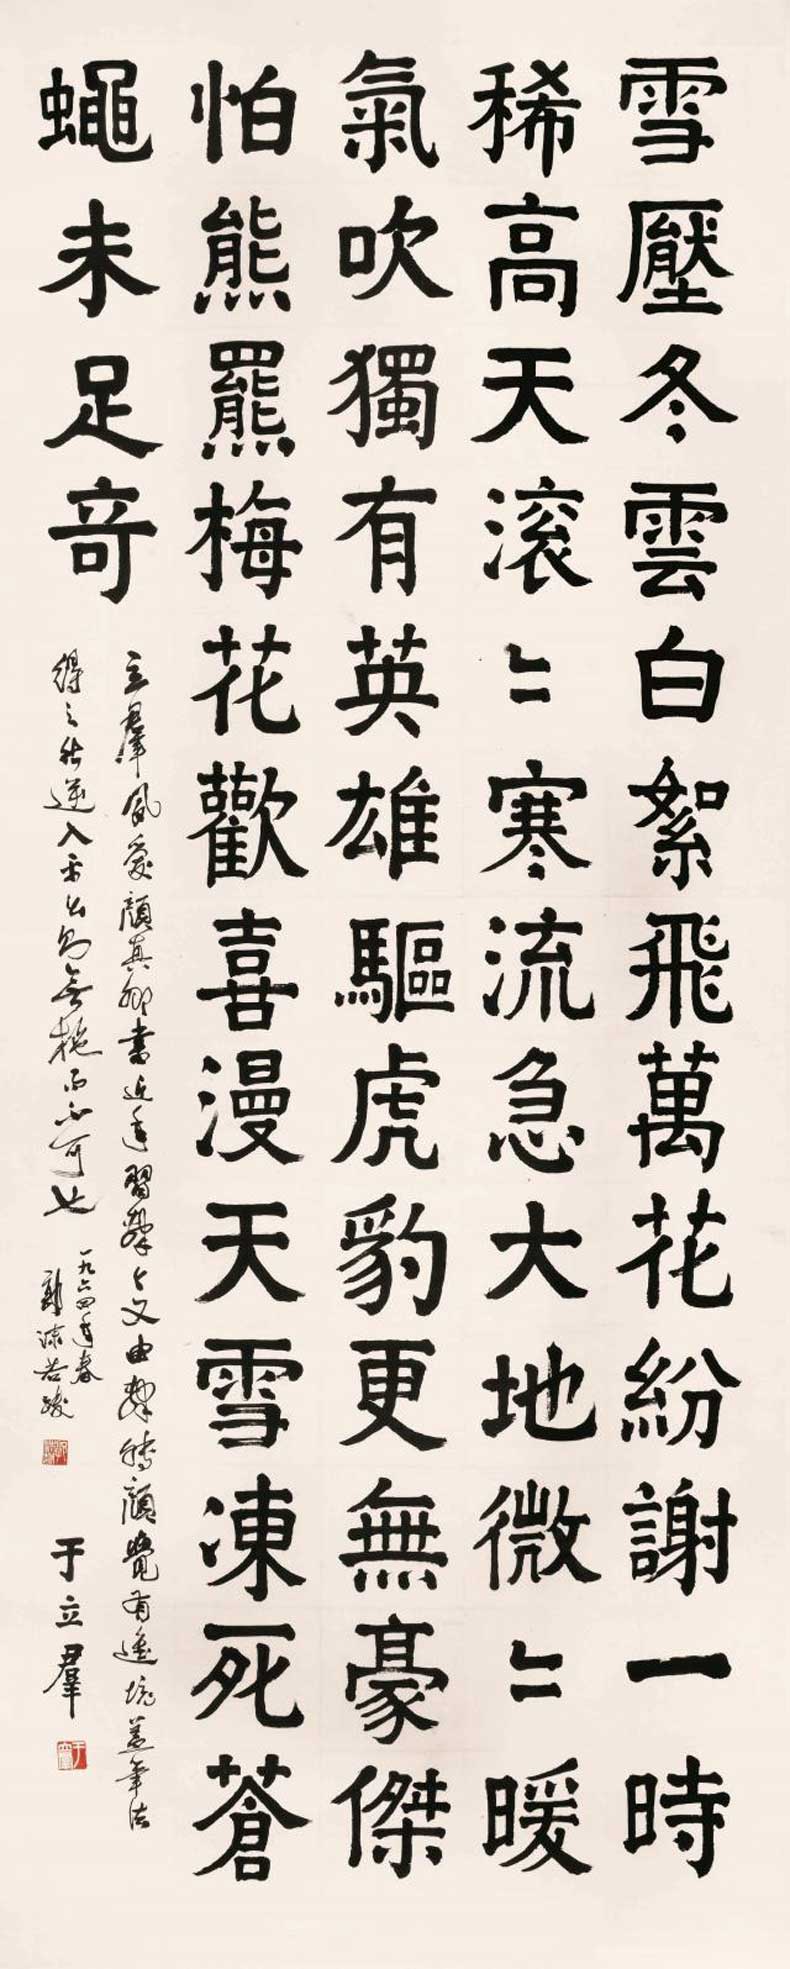 雪壓冬雲白絮飛萬花紛謝一時
稀高天滚〻寒流急大地微〻暖
氣吹獨有英雄驅虎豹更無豪傑
怕熊羆梅花歡喜漫天雪凍死蒼
蠅未足竒
立羣夙愛顔真卿書近年習由轉顔覺有進境蓋筆法
得之能逆入平出無施而不可也
一九六四年春
郭沫若跋
于立羣